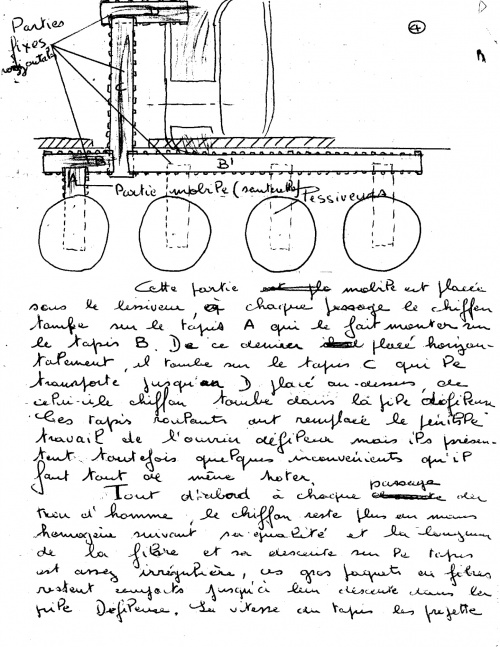 Parties
④
fixes
horizontales
D
A
C
B
B'
A
Partie mobile (sauterelle)
Lessiveurs
Cette partie mobile est placée
sous le lessiveur, à chaque passage le chiffon
tombe sur le tapis A qui le fait monter sur
le tapis B. De ce dernier placé horizon-
talement, il tombe sur le tapis C qui le
transporte jusqu'en D placé au-dessus, de
celui-ci le chiffon tombe dans la pile défileuse
Ces tapis roulants ont remplacé le pénible
travail de l'ouvrier défileur mais ils présen-
tent toutefois quelques inconvénients qu'il
faut tout de même noter.
Tout d'abord à chaque passage du
trou d'homme, le chiffon reste plus ou moins
homogène suivant sa qualité et la longueur
de la fibre et sa descente sur le tapis
est assez irrégulière, ces gros paquets de fibres
restent compacts jusqu'à leur descente dans la
pile Défileuse. La vitesse du tapis les projette